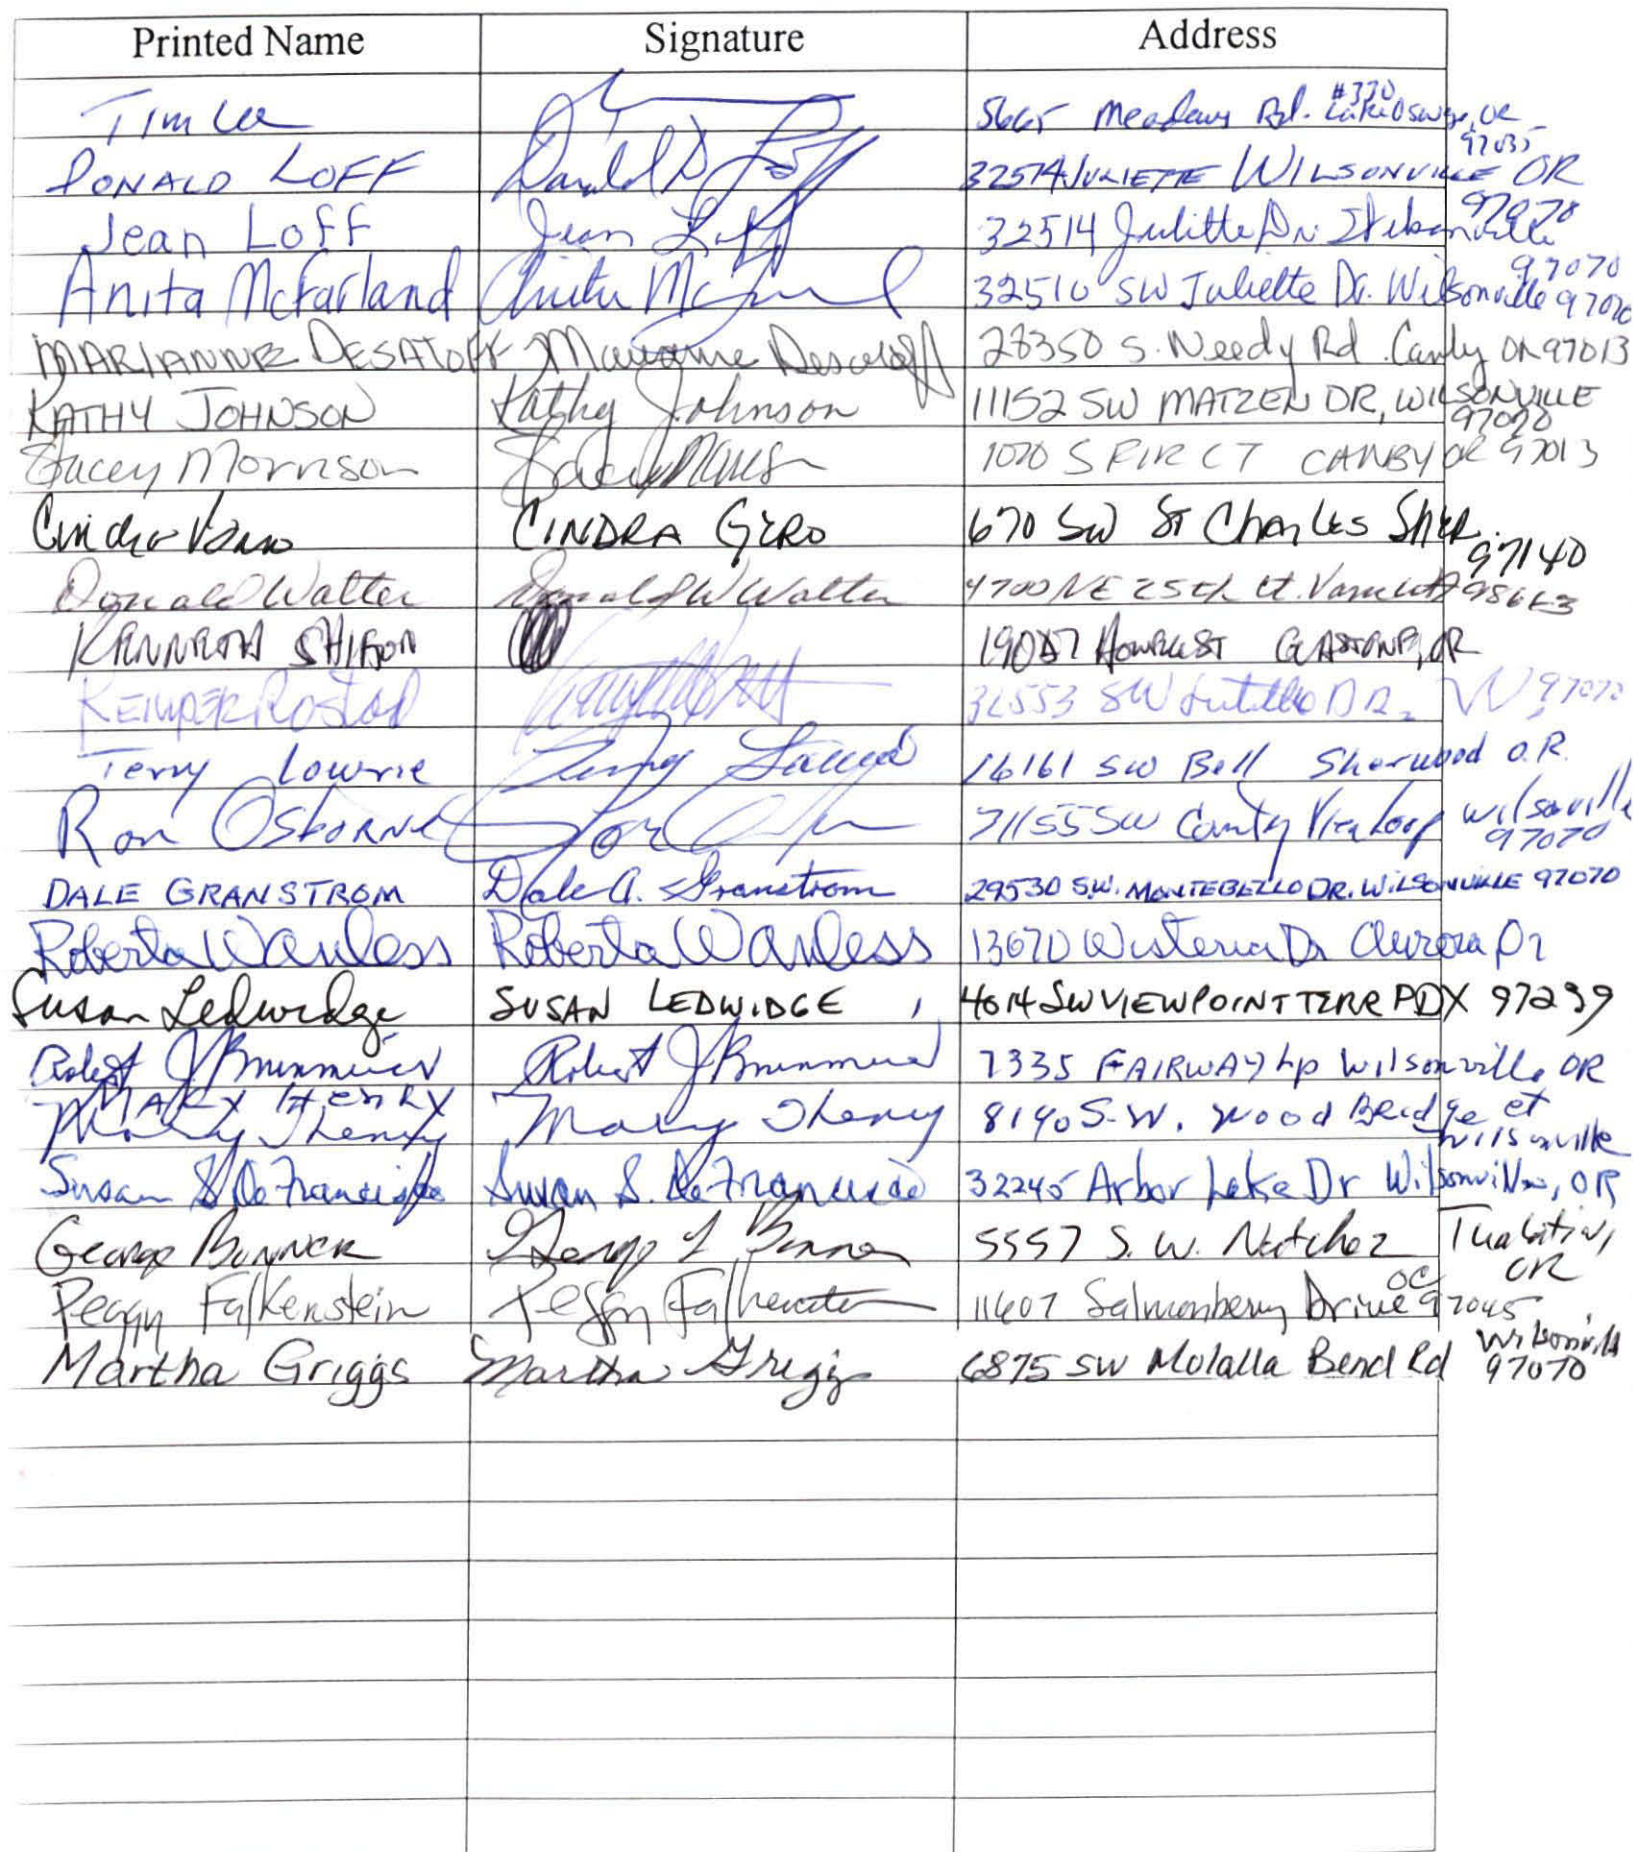 Printed Name Signature Address
Tim Lee 5665 Meadows Rd. #330 Lake Oswego, OR 97035
DONALD LOFF Donald D Loff 32514 JULIETTE WILSONVILLE OR 97070
Jean Loff Jean Loff 32514 Juliette Dr. Wilsonville 97070
Anita McFarland Anita 32510 SW Juliette Dr. Wilsonville 97070
MARIANNE DESATOFF Marianne Desatoff 28350 S. Needy Rd. Canby OR 97013
KATHY JOHNSON Kathy Johnson 11152 SW MATZEN DR, WILSONVILLE 97070
Stacey Morrison 1070 S FIR CT CANBY OR 97013
CINDRA GERO 670 SW ST Charles Sher. 97140
Donald Walter Donald W Walter 4700 NE 25th Ct. 98663
KENNETH GASTON, OR
KEMPER 32553 SW DR. W. 97070
Terry Lowrie Terry Lowrie 16161 SW Bell Sherwood O.R.
Ron Osborne SW Country View Loop Wilsonville 97070
DALE GRANSTROM Dale A. Granstrom 29530 S.W. MONTEBELLO DR. WILSONVILLE 97070
Roberta Wanless Roberta Wanless 13670 Wisteria Dr Aurora Or
Susan Ledwidge SUSAN LEDWIDGE , 4614 SW VIEWPOINT TERR PDX 97239
Robert J Robert J 7335 FAIRWAY Lp Wilsonville, OR
MARY HENRY
Mary Henry Mary Henry 8190 S.W. Wood Bridge Ct Wilsonville
Susan S. DeFrancisco Susan S. DeFrancisco 32245 Arbor Lake Dr Wilsonville, OR
George Bonner George L Bonner 5557 S.W. Natchez Tualatin, OR
Peggy Falkenstein Peggy Falkenstein 11607 Salmonberry Drive OC 97045
Martha Griggs Martha Griggs 6875 SW Molalla Bend Rd Wilsonville 97070